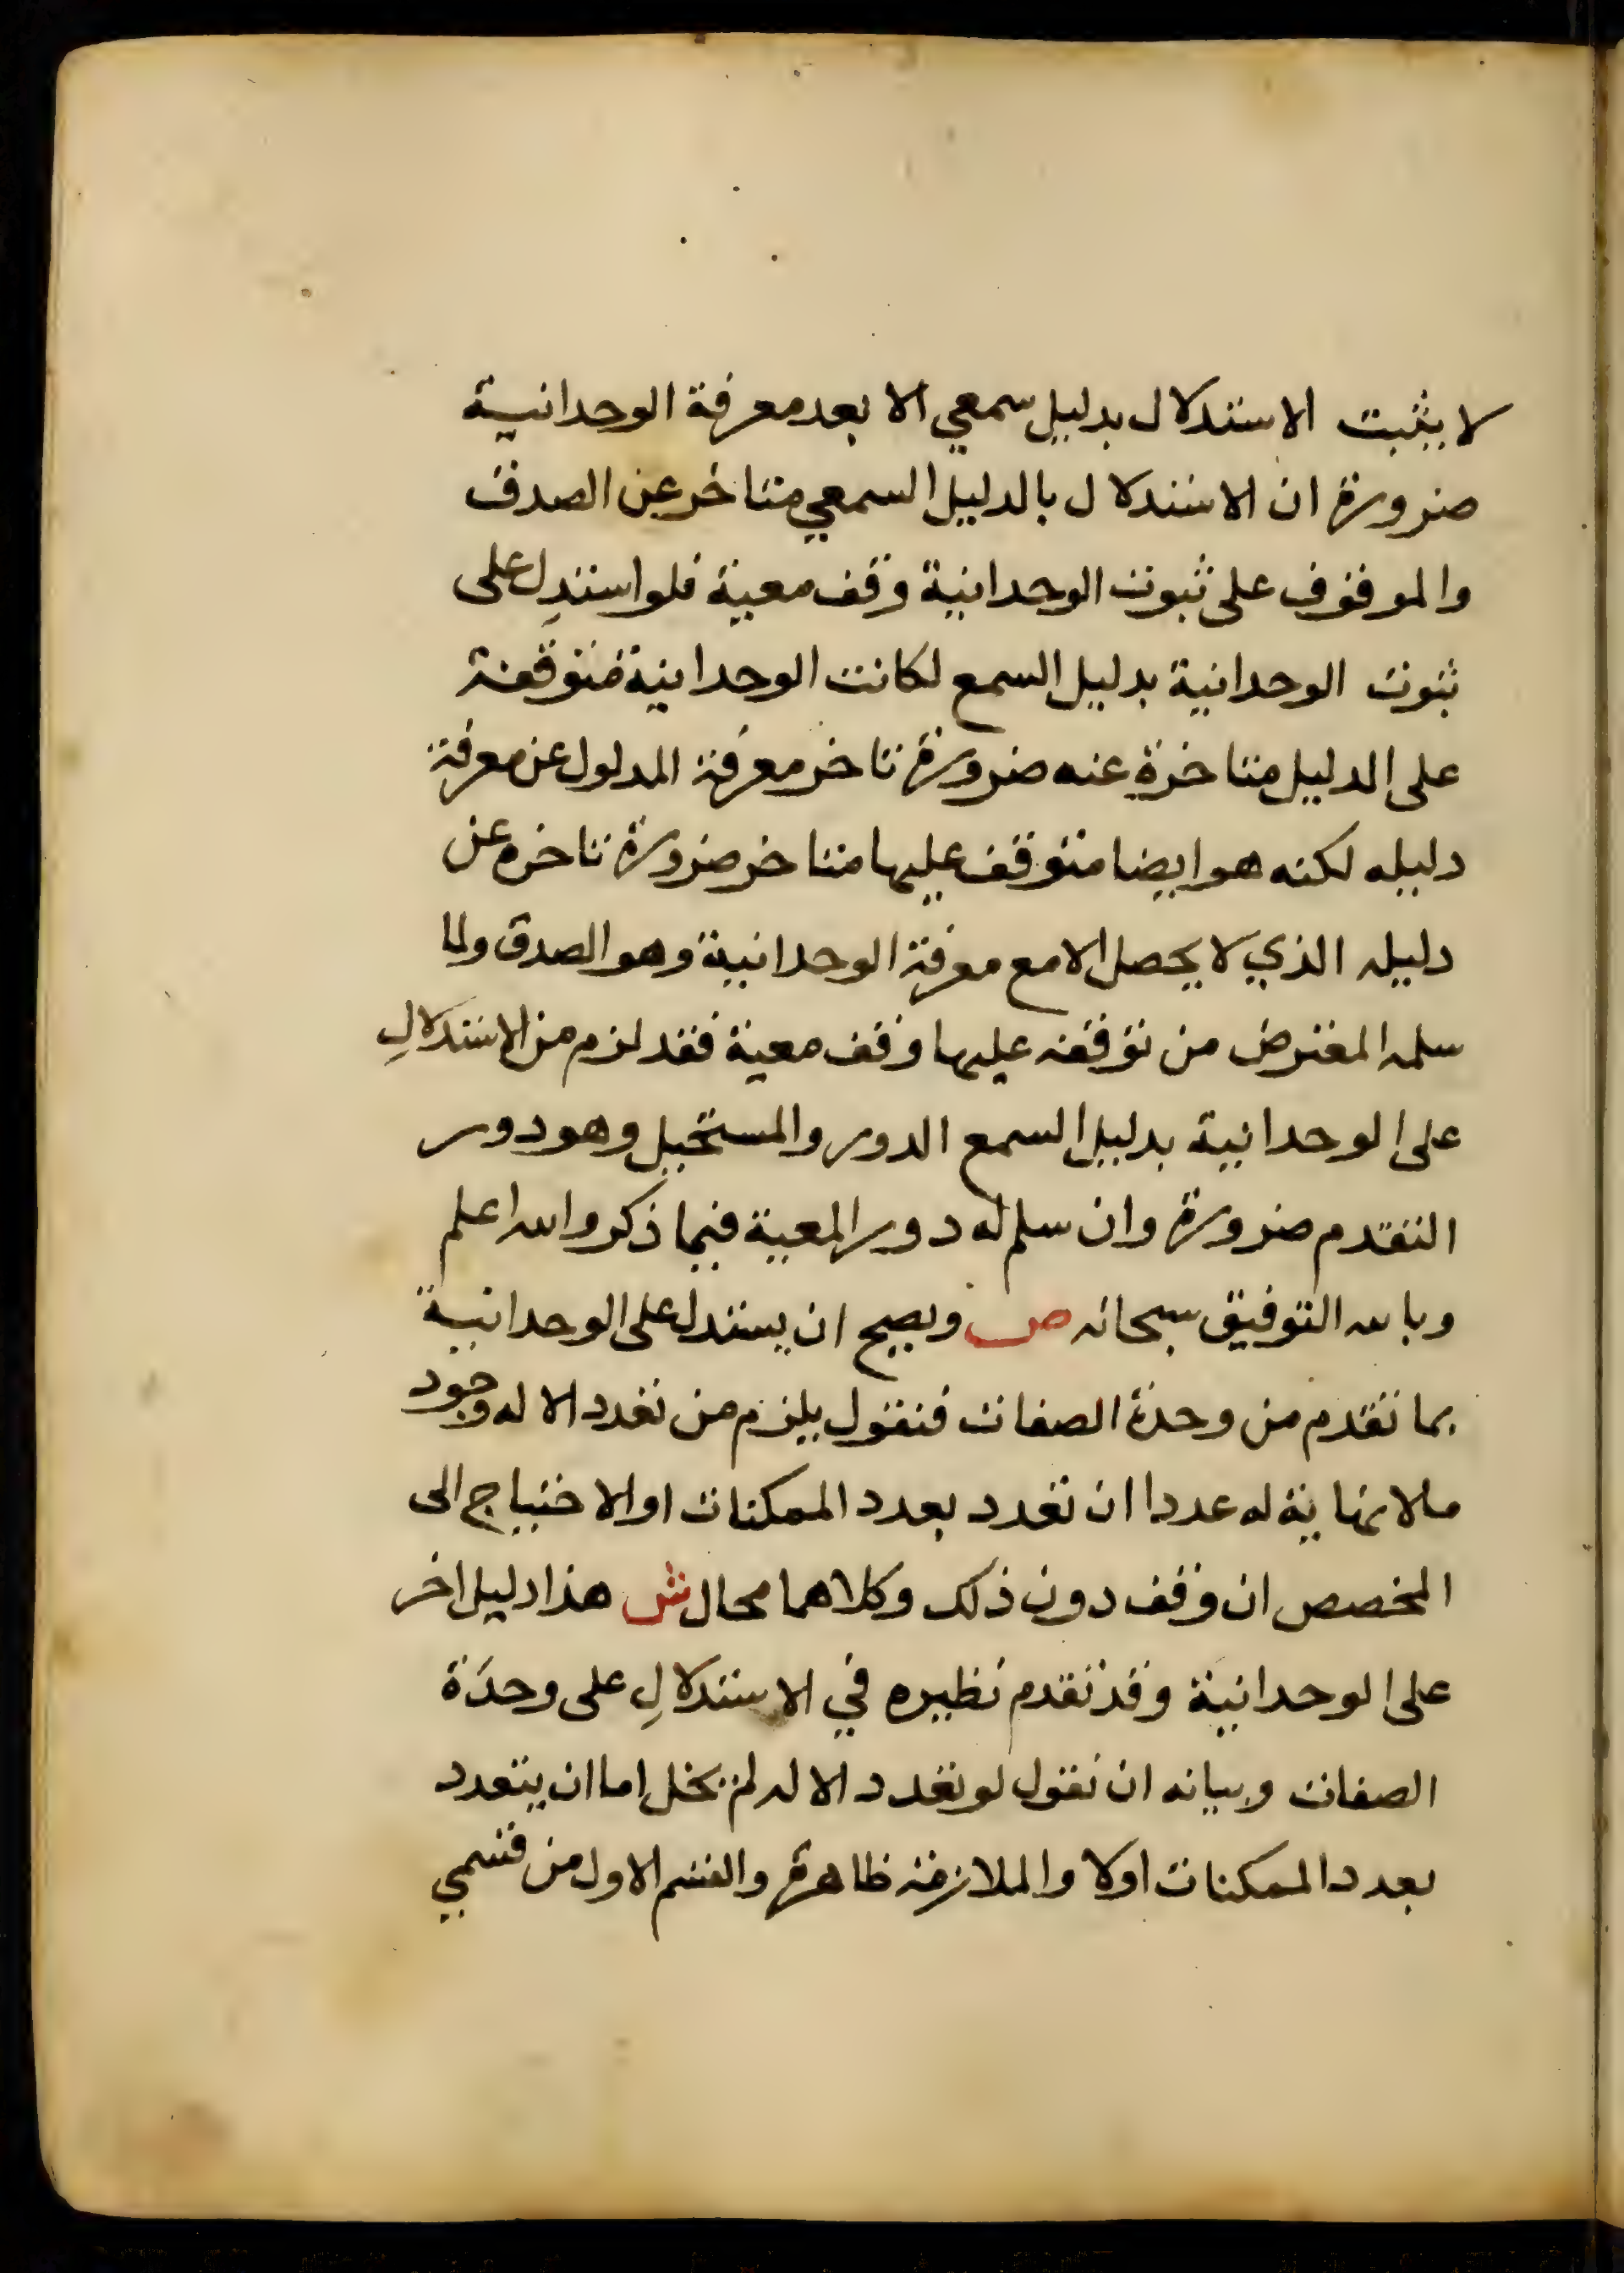 لا يثبت الاستدلال بدليل سمعي الا بعد معرفة الوحدانية
ضرورة ان الاستدلال بالدليل السمعي متاخر عن الصدق
والموقوف على ثبوت الوحدانية وقف معية فلو استدل على
ثبوت الوحدانية بدليل السمع لكانت الوحدانية متوقفة
على الدليل متاخرة عنه ضرورة تاخر معرفة المدلول عن معرفة
دليله لكنه هو ايضا متوقف عليها متاخر ضرورة تاخره عن
دليله الذي لا يحصل الا مع معرفة الوحدانية وهو الصدق ولما
سلمه المعترض من توقفه عليها وقف معية فقد لزم من الاستدلالِ
على الوحدانية بدليل السمع الدور والمستحيل وهو دور
التقدم ضرورة وان سلم له دور المعية فيما ذكر والله اعلم
وبالله التوفيق سبحانه ص ويصح ان يستدل على الوحدانية
بما تقدم من وحدة الصفات فنقول يلزم من تعدد الاله وجود
مالا نهاية له عددا ان تعدد بعدد الممكنات او الاحتياج الى
المخصص ان وقف دون ذلك وكلاهما محال ش هذا دليل اخر
على الوحدانية وقد تقدم نظيره في الاستدلالِ على وحدَة
الصفات وبيانه ان نقول لو تعدد الاله لم يخل اما ان يتعدد
بعدد الممكنات اولا والملازمة ظاهرة والقسم الاول من قسمي